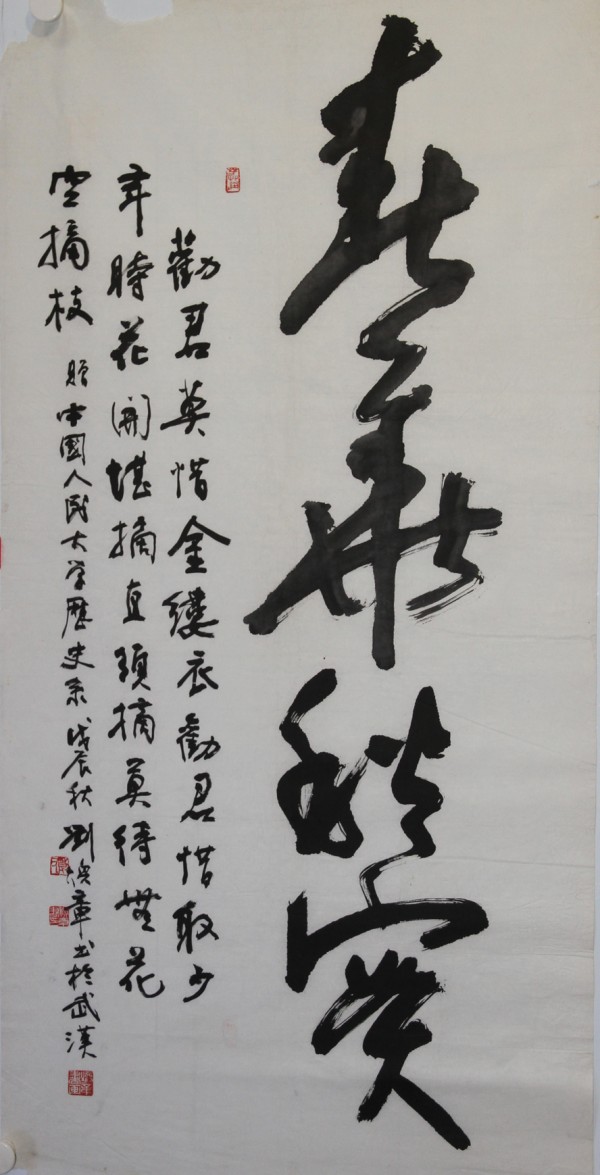 春華秋實
勸君莫惜金縷衣勸君惜取少
年時花開堪摘直須摘莫待無花
空摘枝 贈中國人民大学歷史系 戊辰秋 劉焕章书於武漢